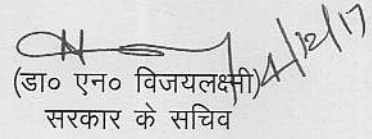 14/12/17
(डा० एन० विजयलक्ष्मी)
सरकार के सचिव